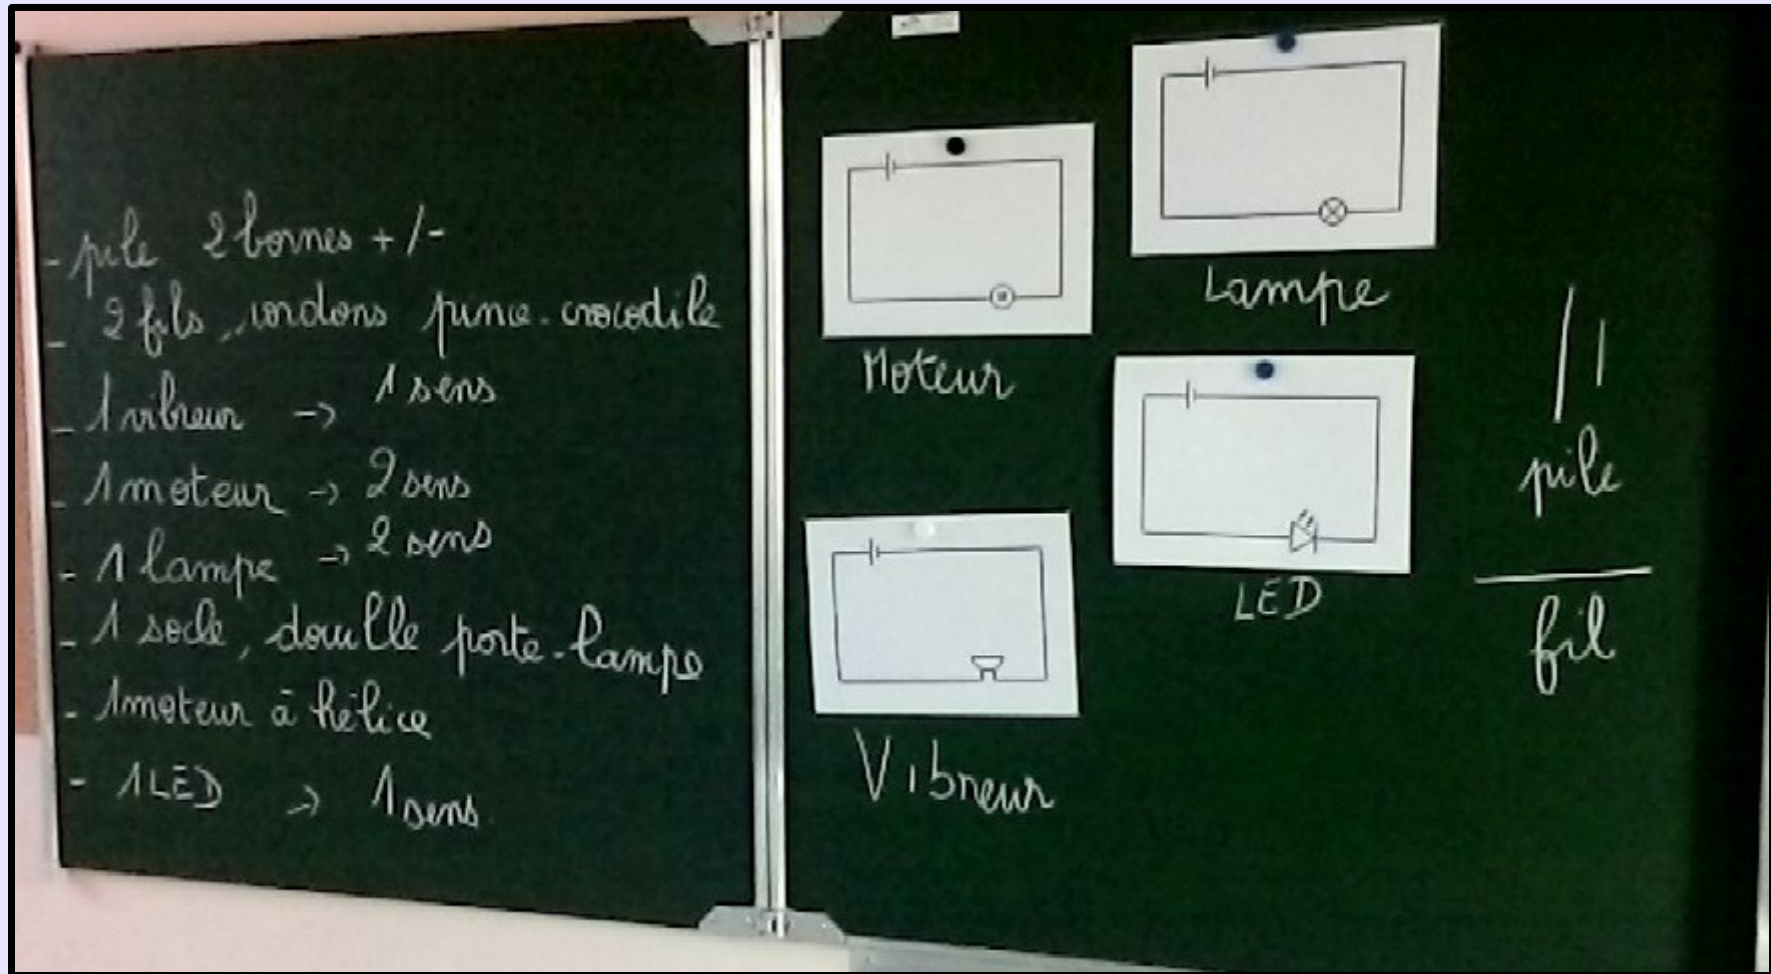 - pile 2 bornes + / -
- 2 fils, cordons pince-crocodile
- 1 vibreur -> 1 sens
- 1 moteur -> 2 sens
- 1 lampe -> 2 sens
- 1 socle, douille porte-lampe
- 1 moteur à hélice
- 1 LED -> 1 sens
Moteur
Lampe
Vibreur
LED
pile
fil